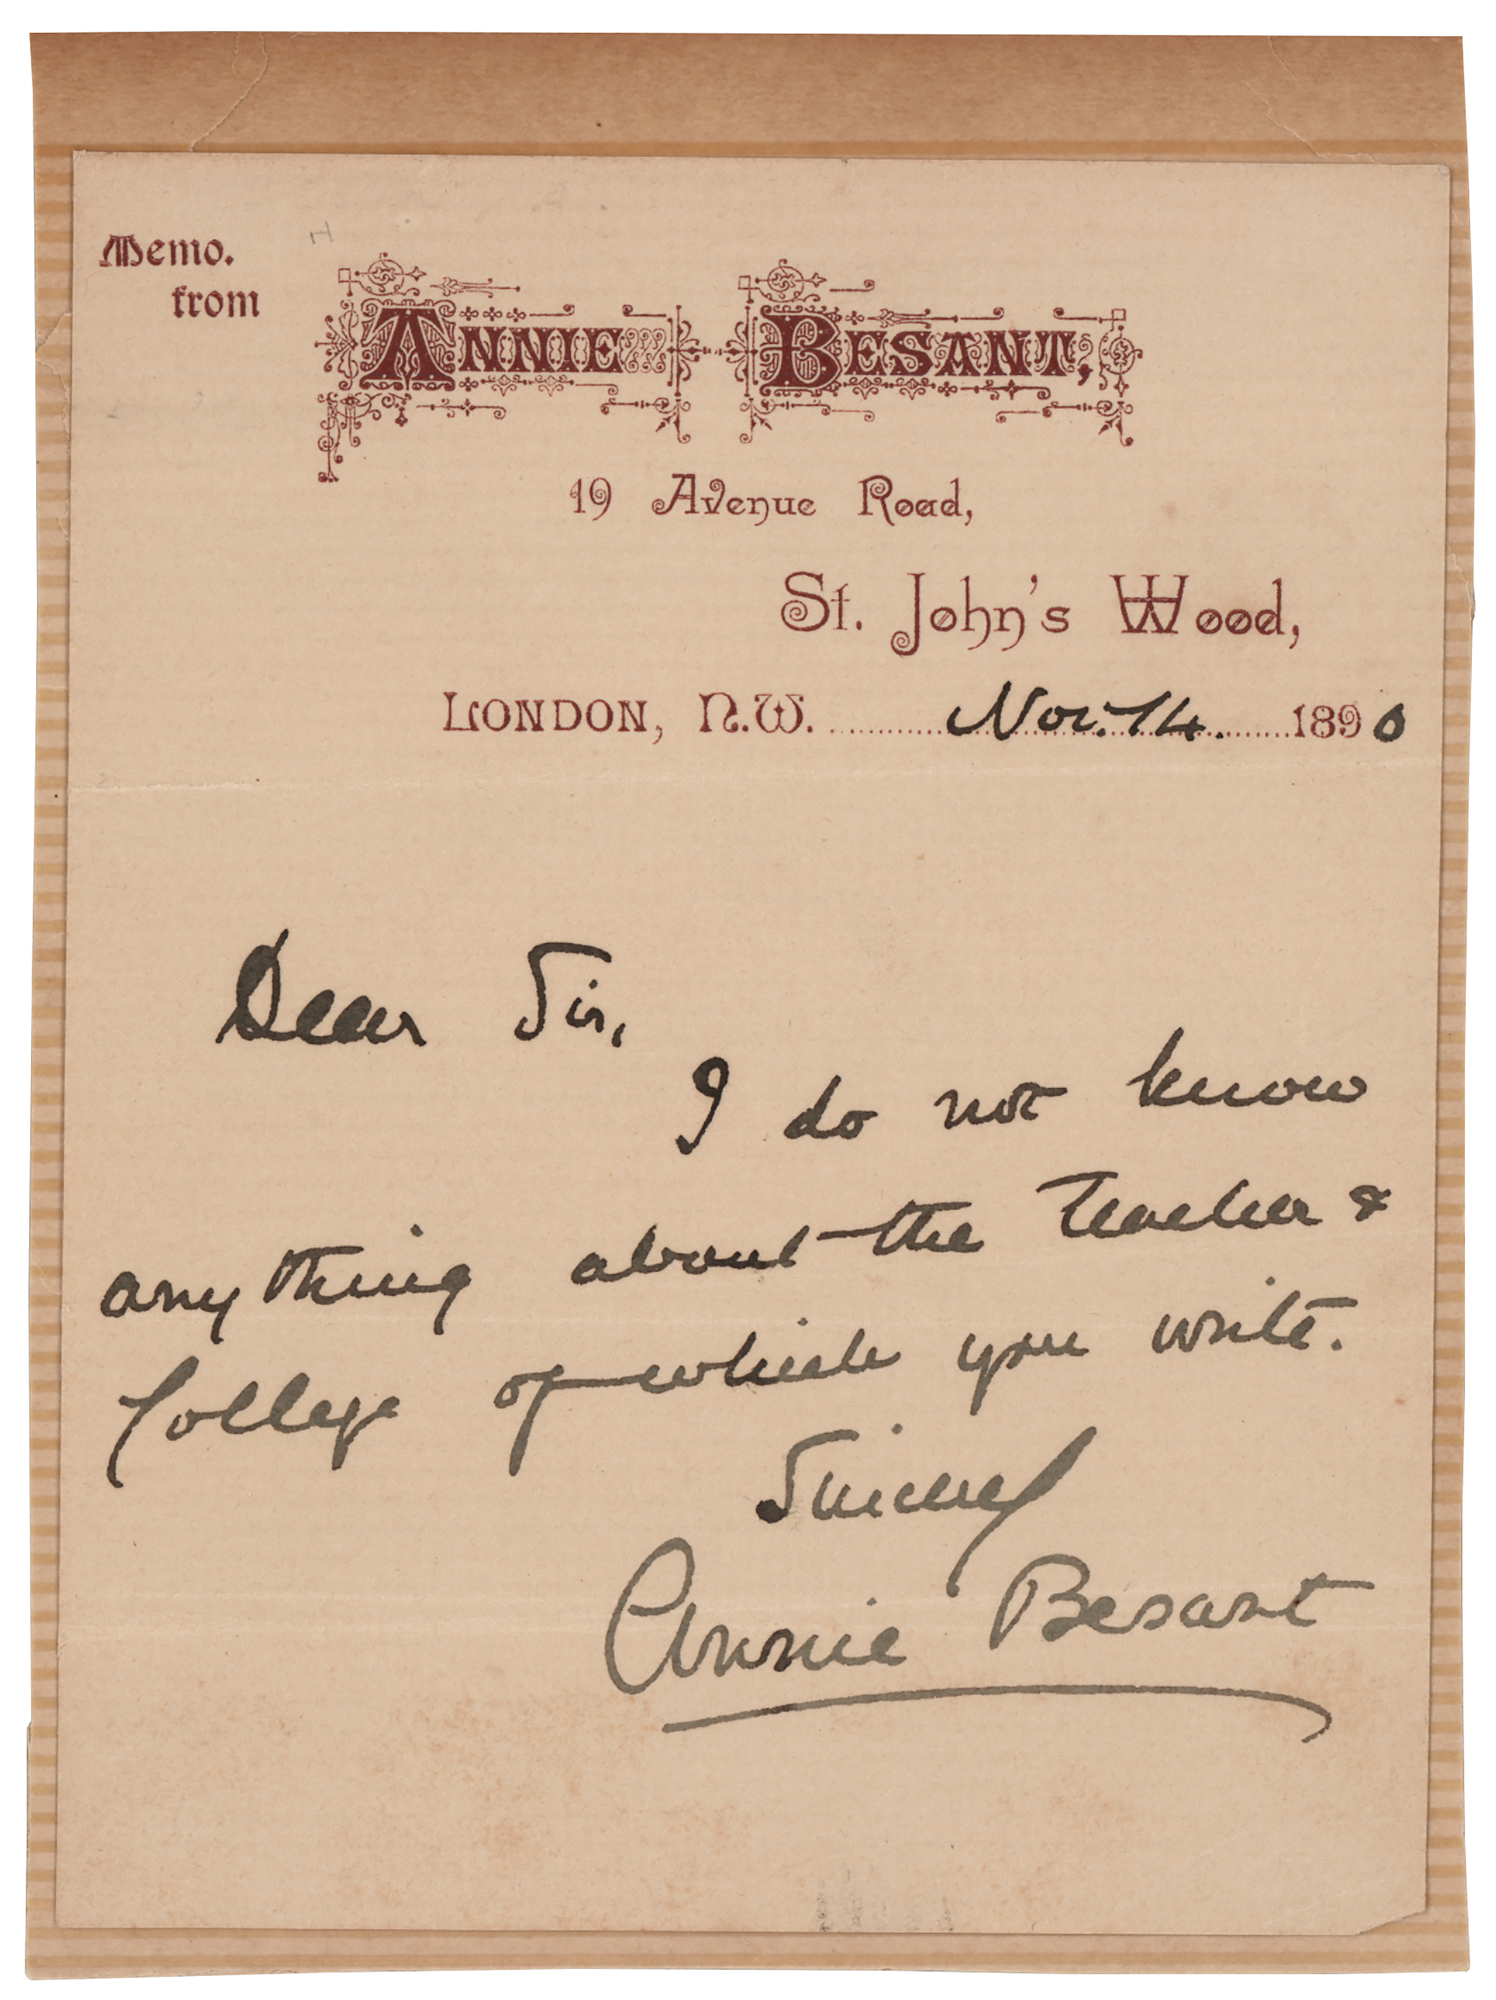 Memo.
from
ANNIE BESANT,
19 Avenue Road,
St. John's Wood,
LONDON, N.W. Nov. 14. 1890
Dear Sir,
I do not know
anything about the Teacher &
College of which you write.
Sincerely
Annie Besant